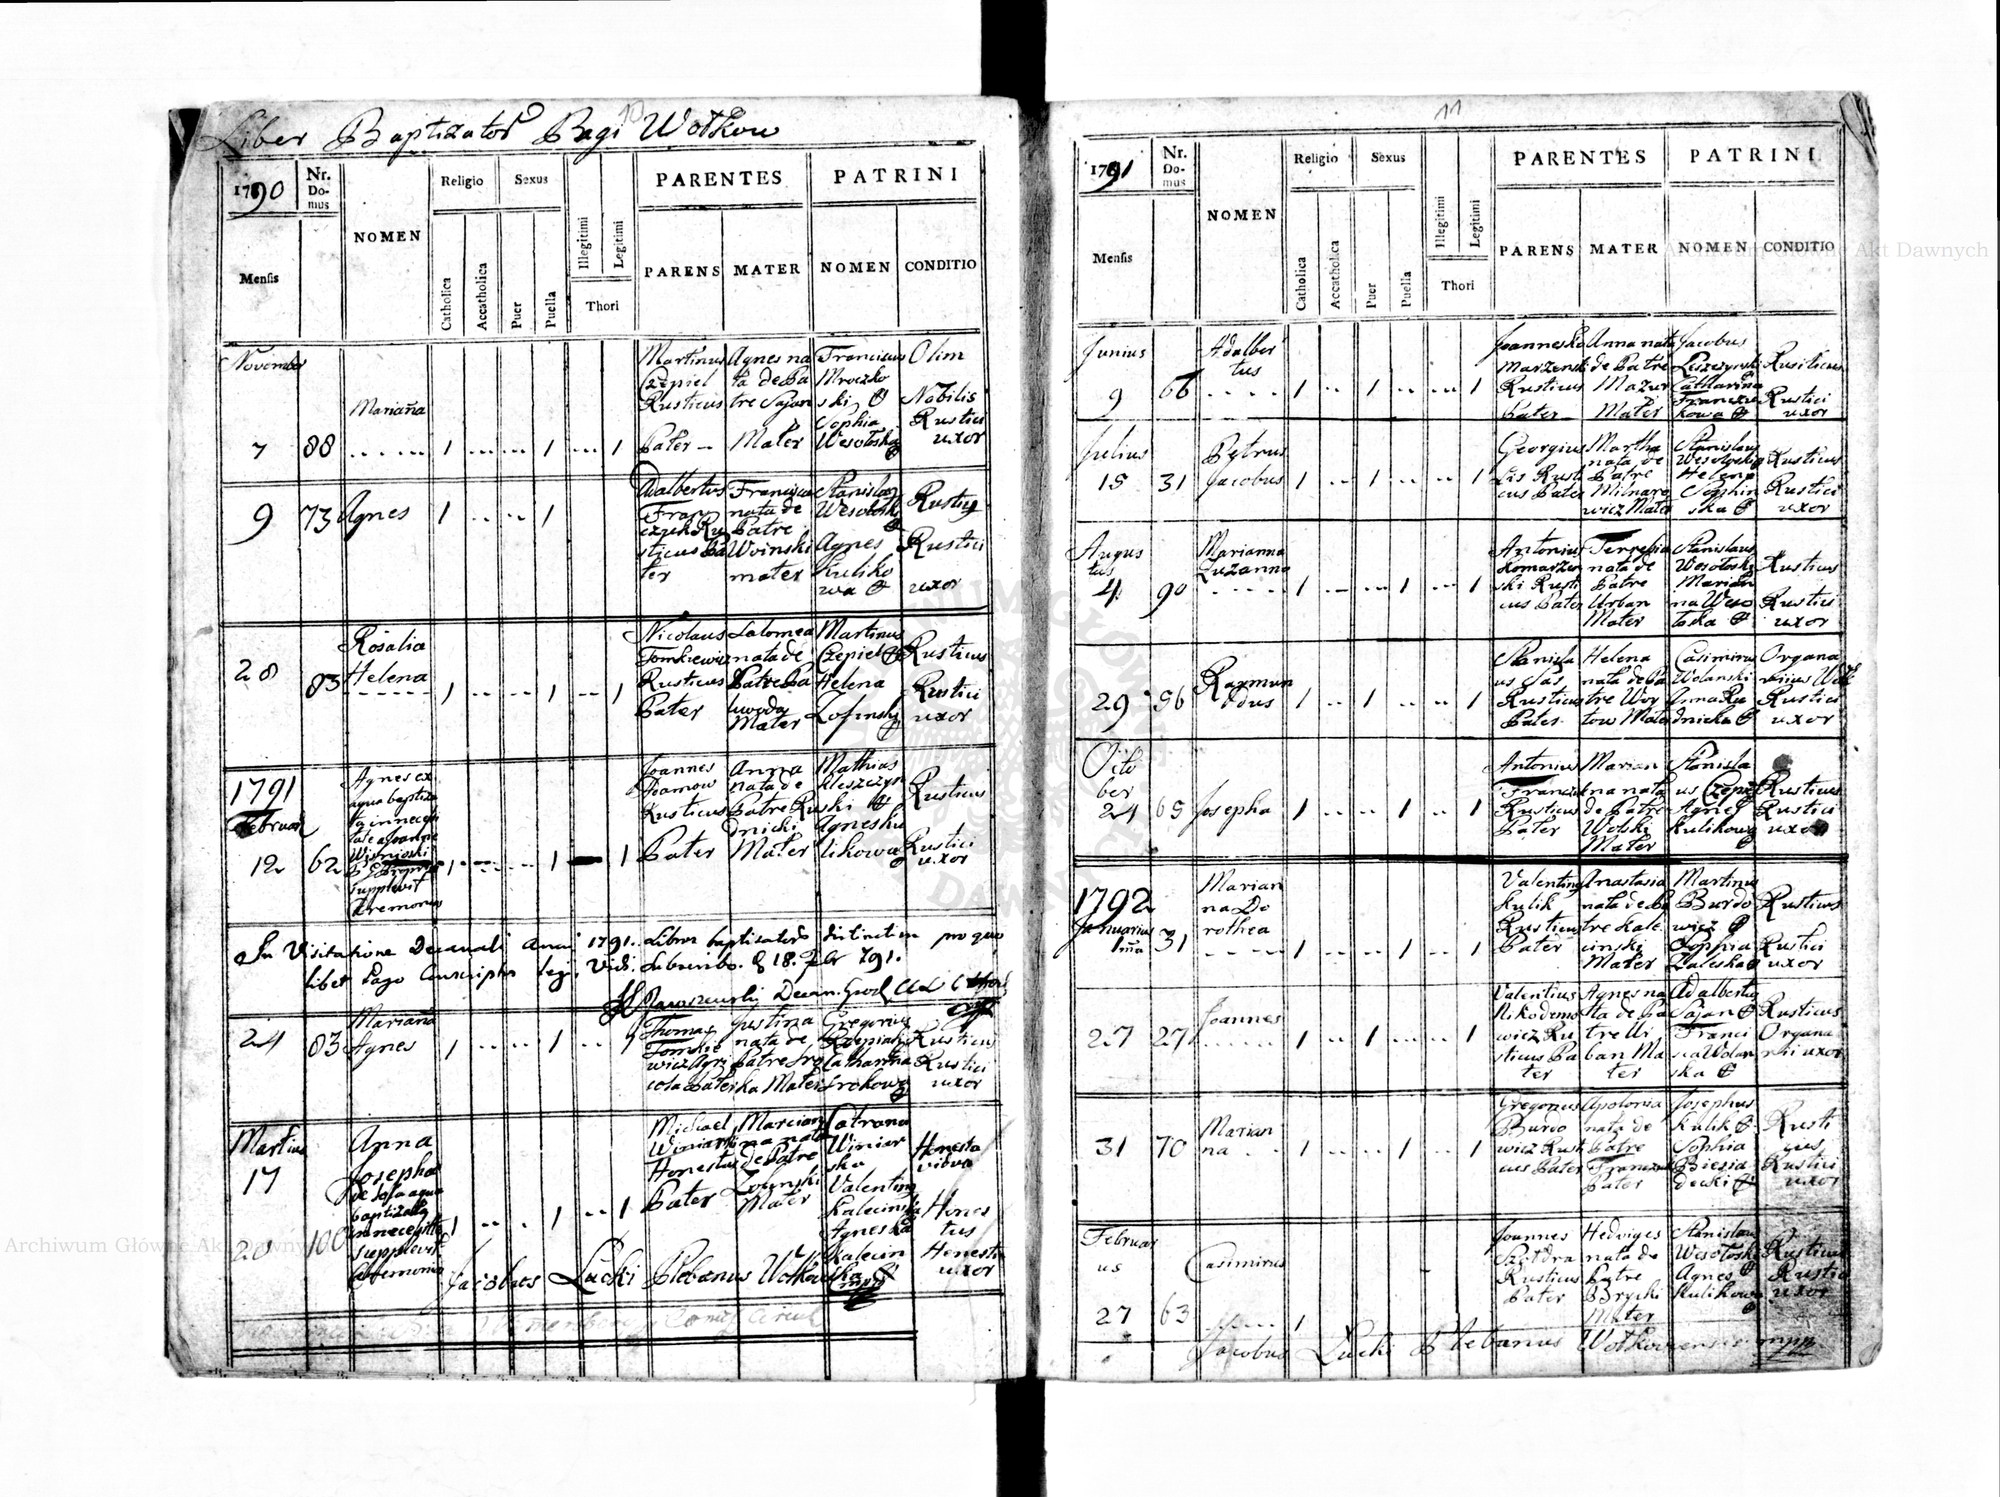 Liber Baptizator Pagi Wołkow
10
1790
Nr. Domus
NOMEN
Religio
Sexus
PARENTES
PATRINI
Mensis
Catholica
Accatholica
Puer
Puella
Illegitimi
Legitimi
Thori
PARENS
MATER
NOMEN
CONDITIO
November
7
88
Mariana
Martinus
Czepiel
Rusticus
Pater
Agnes na
ta de Pa
tre Sajan
Mater
Franciscus
Mroczko
ski &
Sophia
Wesołoska
Olim
Nobilis
Rustici
uxor
9
73
Agnes
Adalbertus
Fran
czyk Ru
sticus Pa
ter
Francisca
nata de
Patre
Woinski
mater
Stanislau
Wesołosk
&
Agnes
Kuliko
wa &
Rusticus
Rustici
uxor
28
83
Rosalia
Helena
Nicolaus
Tomkiewicz
Rusticus
Pater
Salomea
nata de
Patre Pa
Mater
Martinus
Czepiel &
Helena
Rusticus
Rustici
uxor
1791
Februar
12
62
Agnes ex
aqua baptiza
ta in necessi
tate a Joanne
supplevit
Ceremonias
Joannes
Adamow
Rusticus
Pater
Anna
nata de
Patre Ru
dnicki
Mater
Mathias
Kleszczyn
ski &
Agnes Ku
likowa
Rusticus
Rustici
uxor
In Visitatione Decanali Anni 1791. Libros baptisatorum distinctim pro quo
libet Pago Conscriptos legi, Vidi. Subscribo. d 18. 7br 791.
24
83
Mariana
Agnes
Thomas
Tomkie
wicz Agri
cola Pater
Justina
nata de
Patre Sro
ka Mater
Gregorius
Catharina
Srokowa
&
Rusticus
Rustici
uxor
Martius
17
20
100
Anna
Josepha
de sola aqua
baptizata
in necessitate
supplevit
Ceremonia
Michael
Winiarski
Honestus
Pater
Marcian
na nata
de Patre
Mater
Winiar
ska
Valentinus
Kalecinski
Agneska
Kalecin
ska &
Honesta
vidua
Hones
tus
Honesti
uxor
Jacobus Lucki Plebanus
11
1791
Nr. Domus
NOMEN
Religio
Sexus
PARENTES
PATRINI
Mensis
Catholica
Accatholica
Puer
Puella
Illegitimi
Legitimi
Thori
PARENS
MATER
NOMEN
CONDITIO
Junius
9
66
Adalber
tus
Joannes Ko
marzenski
Rusticus
Pater
Anna nata
de Patre
Mazur
Mater
Jacobus
Leszczynski
Catharina
Francisz
kowa &
Rusticus
Rustici
uxor
Julius
15
31
Petrus
Jacobus
Georgius
Lis Rusti
cus Pater
Martha
nata de
Patre
Milnaro
wicz Mater
Stanislaus
Wesołoski
Helena
Rusticus
Rustici
uxor
Augus
tus
4
90
Marianna
Zuzanna
Antonius
Komarzen
ski Rusti
cus Pater
Terresia
nata de
Patre
Urban
Mater
Stanislaus
Wesołoski
Marian
na Weso
łoska &
Rusticus
Rustici
uxor
29
56
Raymun
dus
Stanisla
us Sas
Rusticus
Pater
Helena
nata de Pa
tre Woy
tow Mater
Casimirus
Wolanski
Anna Ru
dnicka &
Organa
rius Wołk
Rustici
uxor
Octo
ber
24
65
Josepha
Antonius
Rusticus
Pater
Marian
na nata
de Patre
Wolski
Mater
Stanisla
us Czepiel
Agnes
Kulikowa
Rusticus
Rustici
uxor
1792
Januarius
1ma
31
Marian
na Do
rothea
Valentinus
Kulik
Rusticus
Pater
Anastasia
nata de Pa
tre Kale
cinski
Mater
Martinus
Burdo
wicz &
Sophia
Zaleska &
Rusticus
Rustici
uxor
27
27
Joannes
Valentius
Nikodemo
wicz Ru
sticus Pa
ter
Agnes na
ta de Pa
tre Ur
ban Ma
ter
Adalbertus
Sajan &
Franci
sca Wolan
ska &
Rusticus
Organa
rii uxor
31
70
Marian
na
Gregorius
Burdo
wicz Rusti
cus Pater
Apolonia
nata de
Patre
Pater
Josephus
Kulik &
Sophia
Biesia
decki &
Rusti
cus
Rustici
uxor
Februari
us
27
63
Casimirus
Joannes
Rusticus
Pater
Hedviges
nata de
Patre
Brycki
Mater
Stanislaus
Wesołoski
Agnes &
Kulikowa
&
Rusticus
Rustici
uxor
Jacobus Lucki Plebanus Wołkoviensis mpp
Archiwum Główne Akt Dawnych
Archiwum Główne Akt Dawnych